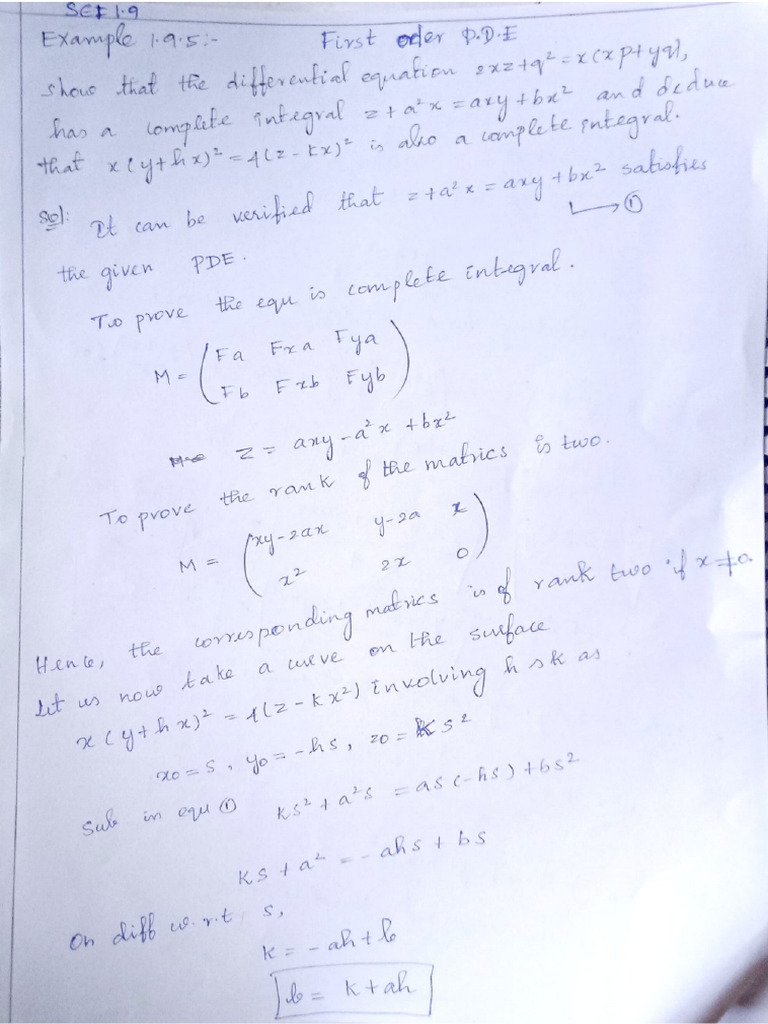 SEE 1.9
Example 1.9.5:- First order P.D.E
show that the differential equation 2xz+q² = x(xp+yq),
has a complete integral z+a²x = axy+bx² and deduce
that x(y+hx)² = 4(z-kx)² is also a complete integral.
Sol: It can be verified that z+a²x = axy+bx² satisfies
①
the given PDE.
Two prove the equ is complete integral.
M = ( Fa Fxa Fya
Fb Fxb Fyb )
z = axy-a²x+bx²
To prove the rank of the matrics is two.
M = ( xy-2ax y-2a x
x² 2x 0 )
Hence, the corresponding matrics is of rank two if x≠0.
Let us now take a curve on the surface
x(y+hx)² = 4(z-kx²) involving h s k as
x0 = s, y0 = -hs, z0 = ks²
Sub in equ ① ks²+a²s = as(-hs)+bs²
ks+a² = -ahs+bs
On diff w.r.t s,
k = -ah+b
b = k+ah